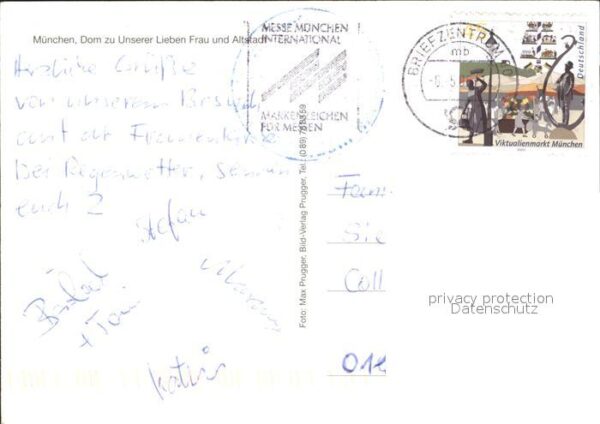 München, Dom zu Unserer Lieben Frau und Altstadt
MESSE MÜNCHEN
INTERNATIONAL
MARKENZEICHEN
FÜR MESSEN
BRIEFZENTRUM
mb
Deutschland
Viktualienmarkt München
Herzliche Grüße
von unserem Besuch
auf der Frauenkirche
bei Regenwetter,
euch 2
Stefan
+ Tom
Katrin
Foto: Max Prugger, Bild-Verlag Prugger, Tel. (089)
Fam
Sie
Coll
01
privacy protection
Datenschutz